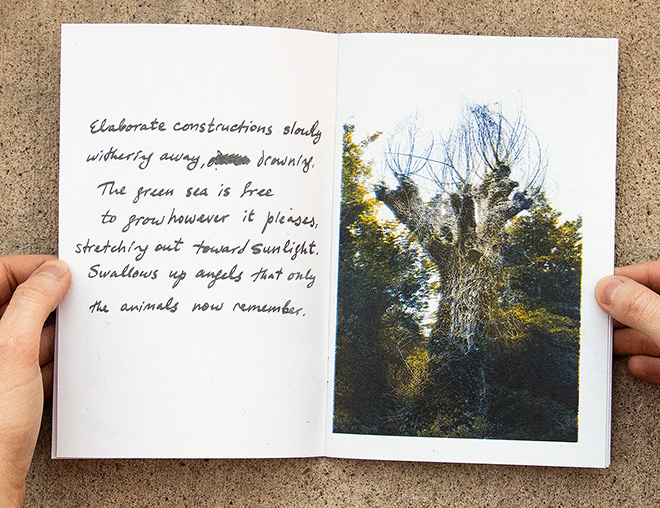 Elaborate constructions slowly
withering away, drowning.
The green sea is free
to grow however it pleases,
stretching out toward sunlight.
Swallows up angels that only
the animals now remember.